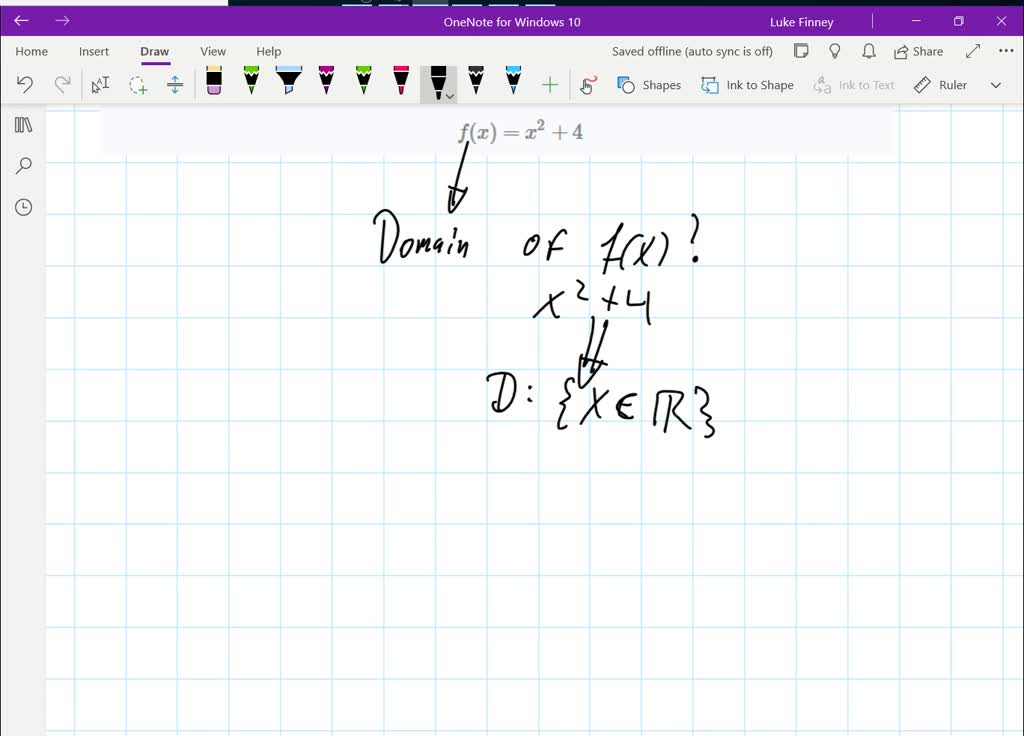 OneNote for Windows 10 Luke Finney
Home Insert Draw View Help Saved offline (auto sync is off) Share
Shapes Ink to Shape Ink to Text Ruler
f(x) = x² + 4
Domain of f(x)?
x² + 4
D: {x ∈ ℝ}